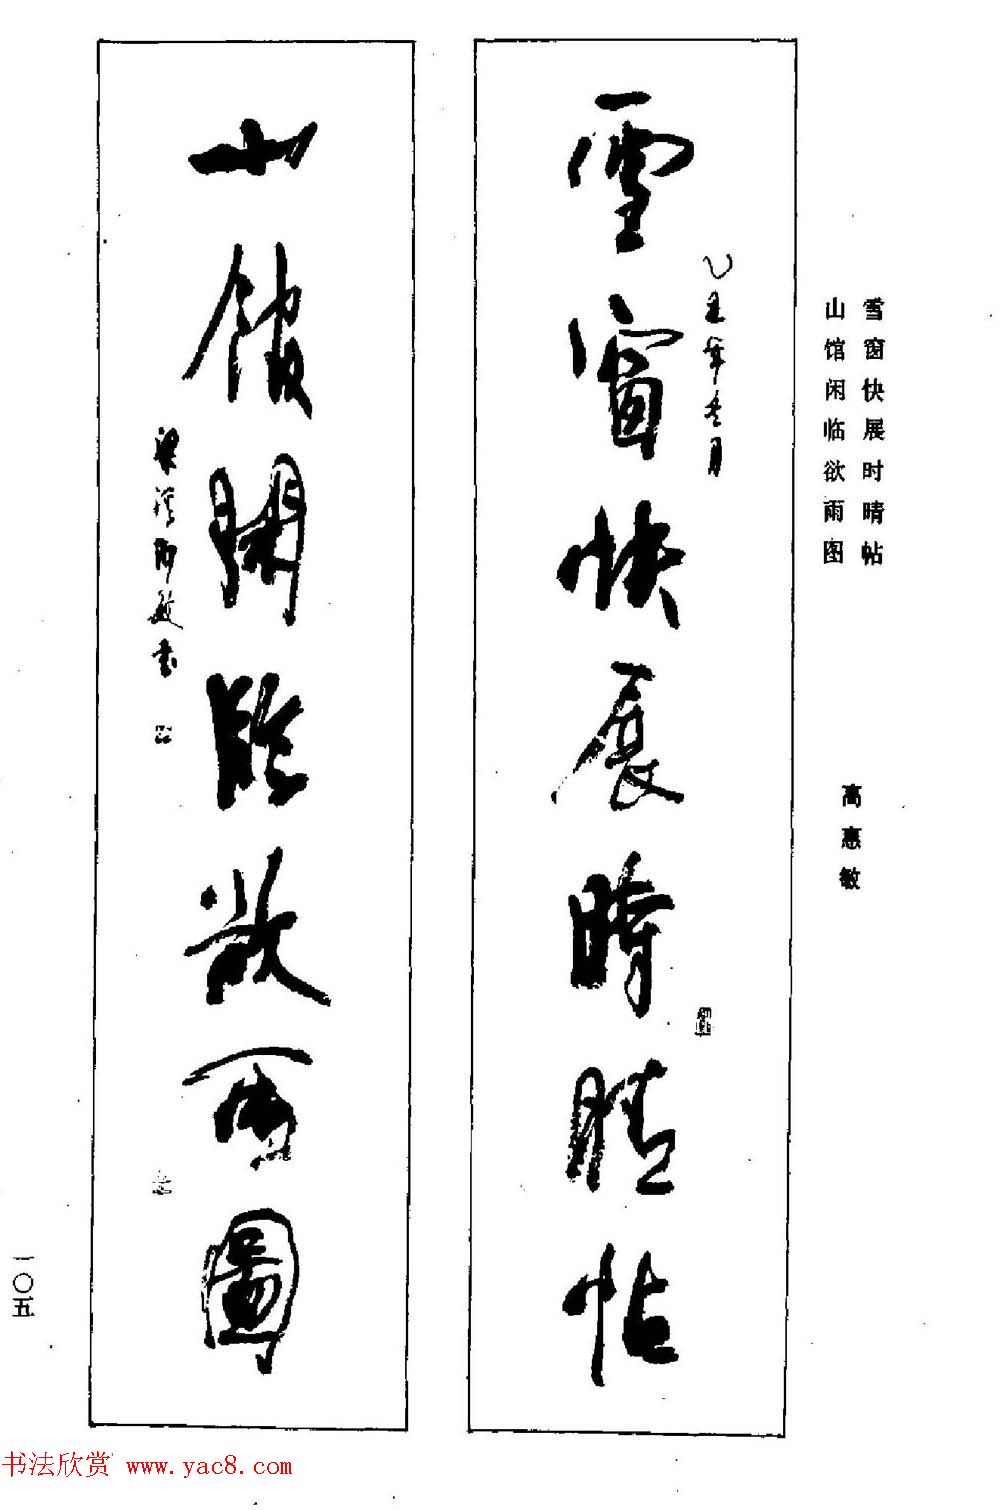 雪窗快展时晴帖
山馆闲临欲雨图
高惠敏
雪窗快展時晴帖
乙丑年冬月
山館閑臨欲雨圖
敏书
一〇五
书法欣赏 www.yac8.com